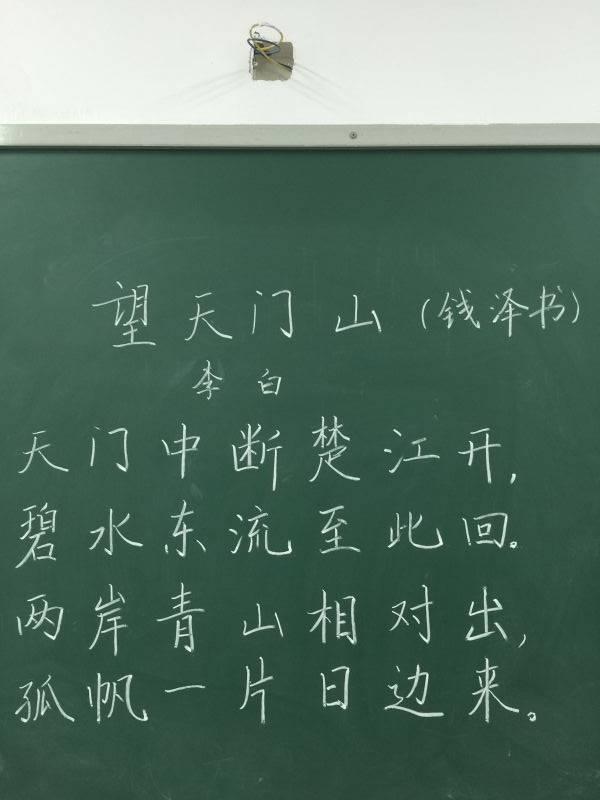 望天门山（钱泽书）
李白
天门中断楚江开，
碧水东流至此回。
两岸青山相对出，
孤帆一片日边来。